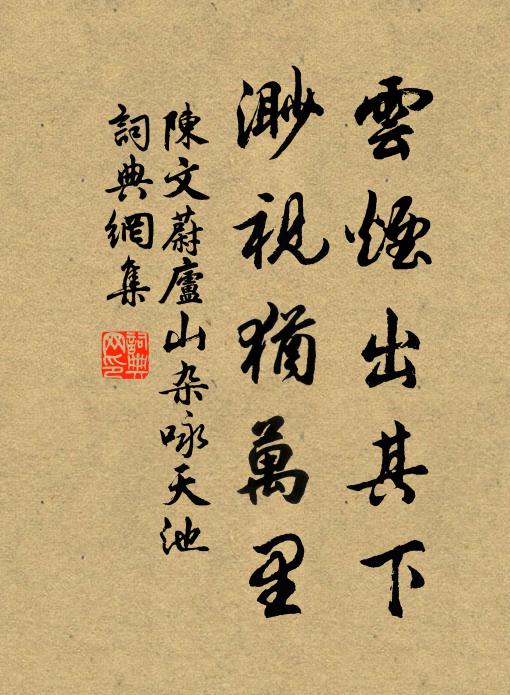 雲煙出其下
渺視猶萬里
陳文蔚廬山杂咏天池
詞典網集
詞典网印